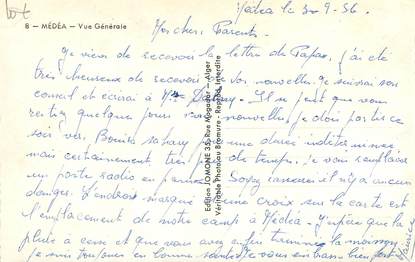 lot
8 — MÉDÉA — Vue Générale
Médéa le 30-9-56.
Mes chers Parents.
Je viens de recevoir la lettre de Papa, j'ai été
très heureux de recevoir de vos nouvelles je suivrai son
conseil et écrirai à Il se peut que vous
restiez quelques jours sans nouvelles, je dois partir ce
soir vers pour une durée indéterminée
mais certainement très peu de temps, je vais remplacer
un poste radio en panne. Soyez rassurés il n'y a aucun
danger. L'endroit marqué d'une croix sur la carte est
l'emplacement de notre camp à Médéa. J'espère que la
pluie a cessé et que vous avez enfin terminé la moisson
je suis toujours en bonne santé et vous embrasse bien fort
Edition JOMONE 35, Rue Mogador - Alger
Véritable Photo au Bromure - Reprod. Interdite